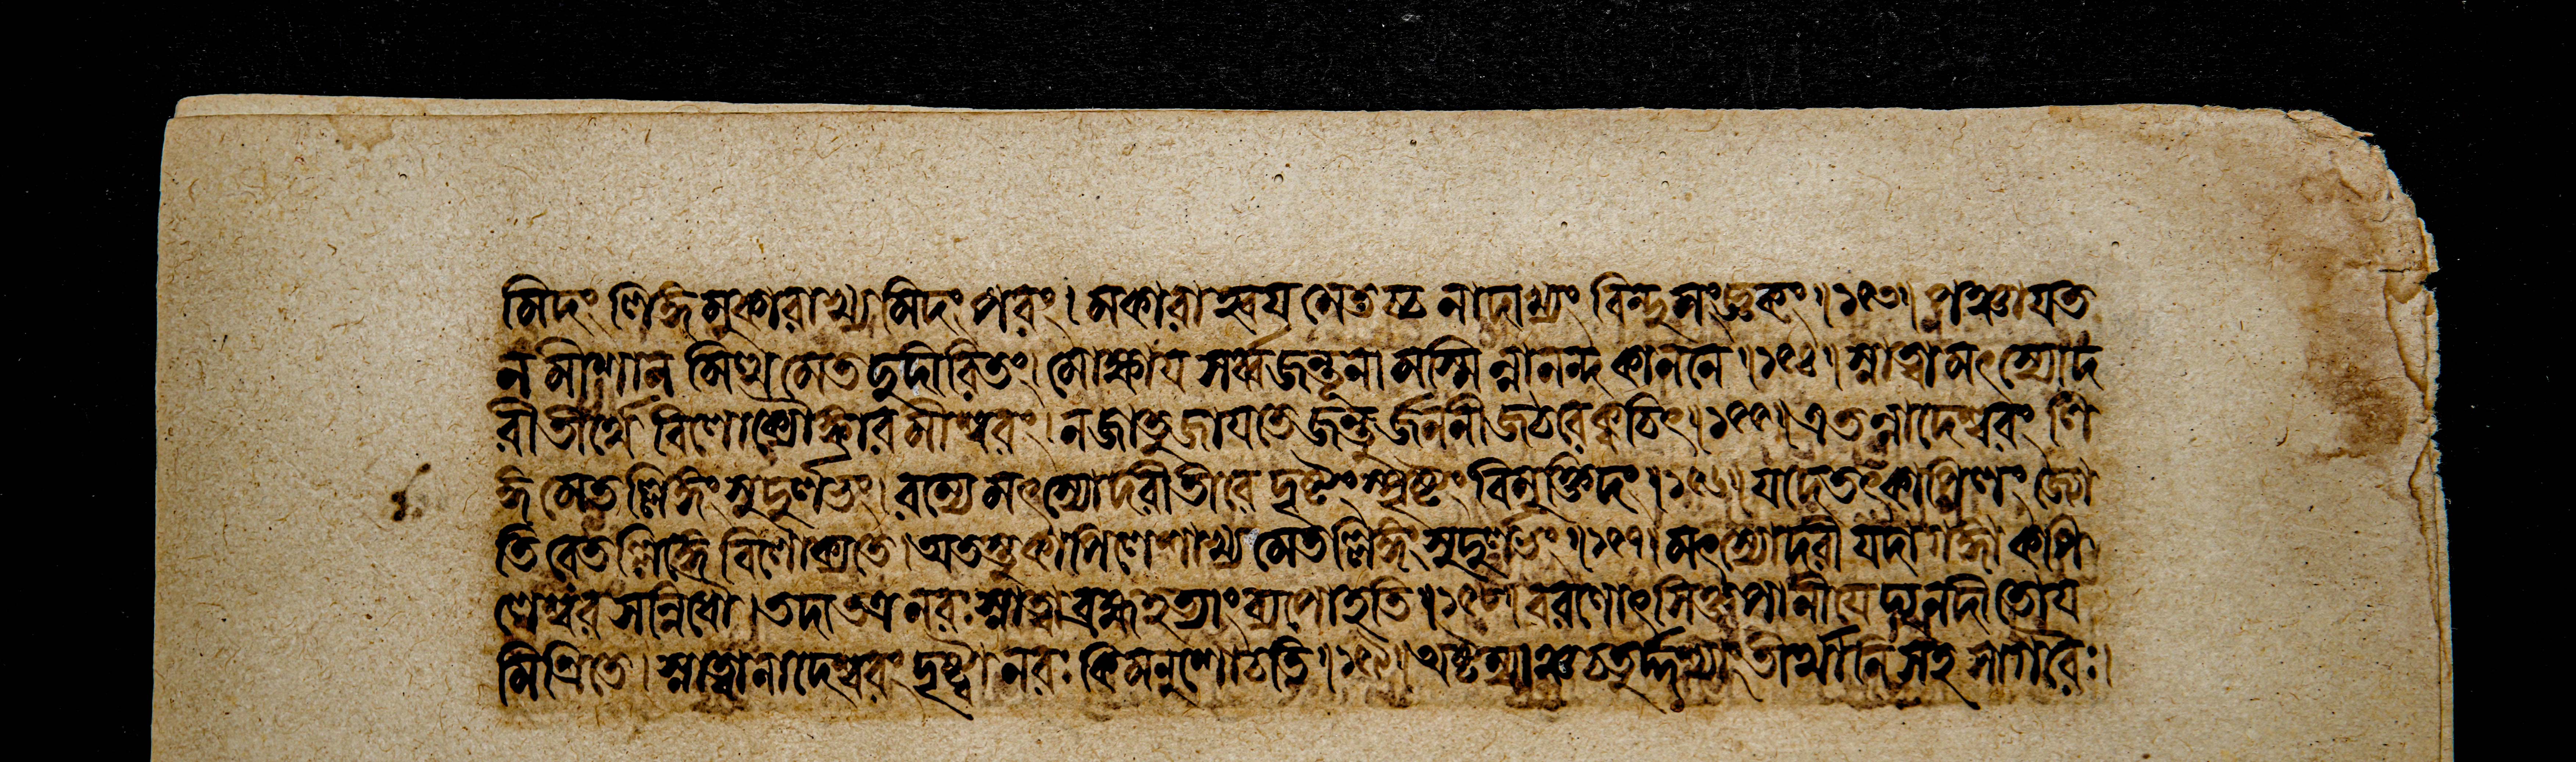 মিদং লিঙ্গমুকারাখ্যমিদং পরং। মকারাহ্বয়মেতচ্চ নাদাখ্যং বিন্দুসংজ্ঞকং॥১৫৩॥ পঞ্চায়ত
নমীশানমিত্থমেতদুদীরিতং। মোক্ষায় সর্ব্বজন্তূনামস্মিন্নানন্দকাননে॥১৫৪॥ স্নাত্বা মৎস্যোদ
রীতীর্থে বিলোক্যোঙ্কারমীশ্বরং। ন জাতু জায়তে জন্তুর্জননীজঠরে ক্বচিৎ॥১৫৫॥ এতন্নাদেশ্বরং লি
ঙ্গমেতল্লিঙ্গং সুদুর্লভং। রম্যে মৎস্যোদরীতীরে দৃষ্টং স্পৃষ্টং বিমুক্তিদং॥১৫৬॥ যদেতৎকাপিলং জ্যো
তিরেতল্লিঙ্গে বিলোক্যতে। অতস্তু কপিলেশাখ্যমেতল্লিঙ্গং সুদুর্লভং॥১৫৭॥ মৎস্যোদরী যদা গঙ্গা কপি
লেশ্বরসন্নিধৌ। তদা তত্র নরঃ স্নাত্বা ব্রহ্মহত্যাং ব্যপোহতি॥১৫৮॥ বরণোৎসিক্তপানীয়ে দ্যুনদীতোয়
মিশ্রিতে। স্নাত্বা নাদেশ্বরং দৃষ্ট্বা নরঃ কিমনুশোচতি॥১৫৯॥ অষ্টম্যাঞ্চ চতুর্দ্দশ্যাং তীর্থানি সহ সাগরৈঃ।